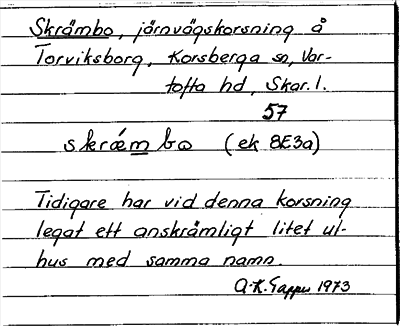 Skrämbo, järnvägskorsning å
Torviksborg, Korsberga sn, Var-
tofta hd, Skar. l.
57
skrǽmbω (ek 8E3a)
Tidigare har vid denna korsning
legat ett anskrämligt litet ul-
hus med samma namn.
A-K. Tappu 1973